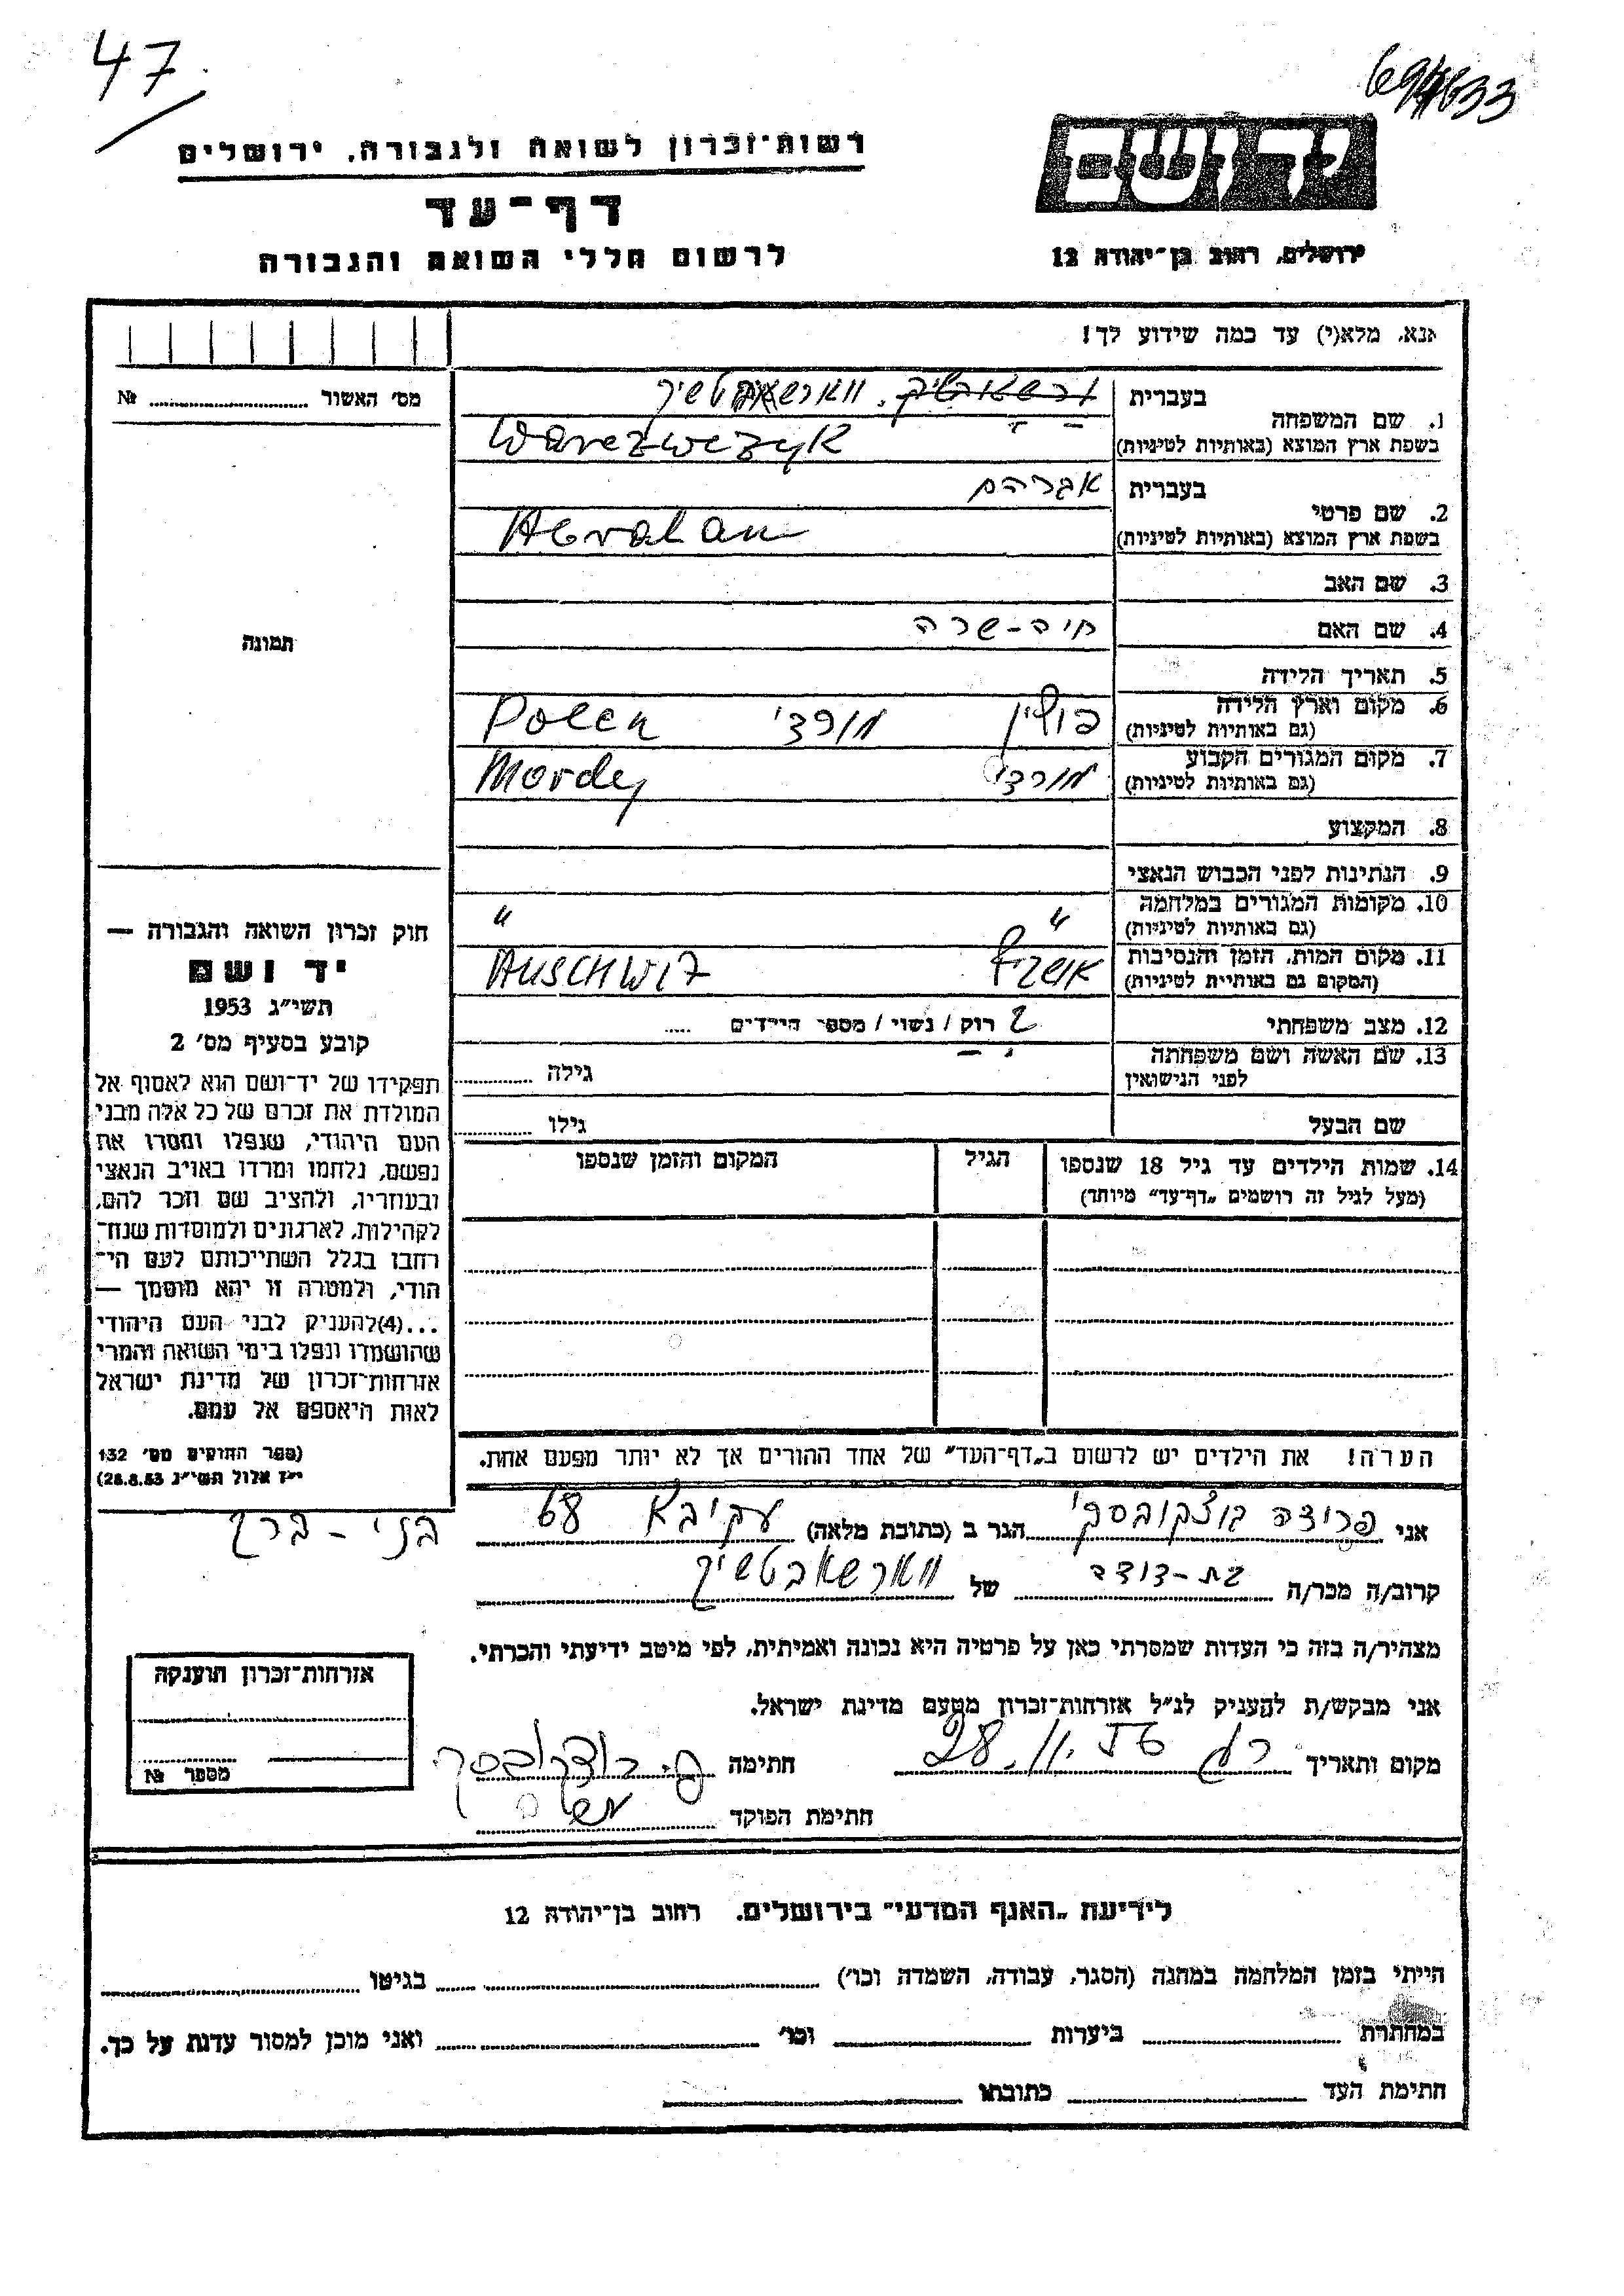 47
רשות־זכרון לשואה ולגבורה, ירושלים
דף־עד
לרשום חללי השואה והגבורה
יד ושם
ירושלים, רחוב בן־יהודה 12
אנא, מלא(י) עד כמה שידוע לך!
מס׳ האשור № ........
תמונה
1. שם המשפחה
בעברית ווארשאבטשיק
בשפת ארץ המוצא (באותיות לטיניות) Warezwczyk
2. שם פרטי
בעברית אברהם
בשפת ארץ המוצא (באותיות לטיניות) Abraham
3. שם האב
4. שם האם חיה-שרה
5. תאריך הלידה
6. מקום וארץ הלידה פולין מורדי Polen
(גם באותיות לטיניות)
7. מקום המגורים הקבוע מורדי Mordy
(גם באותיות לטיניות)
8. המקצוע
9. הנתינות לפני הכבוש הנאצי
10. מקומות המגורים במלחמה " "
(גם באותיות לטיניות)
11. מקום המות, הזמן והנסיבות AUSCHWITZ
(המקום גם באותיות לטיניות)
12. מצב משפחתי רוק / נשוי / מספר הילדים .....
13. שם האשה ושם משפחתה
לפני הנישואין גילה ........
שם הבעל גילו ........
14. שמות הילדים עד גיל 18 שנספו הגיל המקום והזמן שנספו
(מעל לגיל זה רושמים „דף־עד״ מיוחד)
חוק זכרון השואה והגבורה —
יד ושם
תשי״ג 1953
קובע בסעיף מס׳ 2
תפקידו של יד־ושם הוא לאסוף אל
המולדת את זכרם של כל אלה מבני
העם היהודי, שנפלו ומסרו את
נפשם, נלחמו ומרדו באויב הנאצי
ובעוזריו, ולהציב שם וזכר להם,
לקהילות, לארגונים ולמוסדות שנח־
רבו בגלל השתייכותם לעם הי־
הודי, ולמטרה זו יהא מוסמך —
...(4)להעניק לבני העם היהודי
שהושמדו ונפלו בימי השואה והמרי
אזרחות־זכרון של מדינת ישראל
לאות היאספם אל עמם.
(ספר החוקים מס׳ 132
י״ז אלול תשי״ג 28.8.53)
הערה! את הילדים יש לרשום ב„דף־העד״ של אחד ההורים אך לא יותר מפעם אחת.
אני הגר ב (כתובת מלאה) עקיבא 68 בני-ברק
קרוב/ה מכר/ה בת-דודה של ווארשאבטשיק
מצהיר/ה בזה כי העדות שמסרתי כאן על פרטיה היא נכונה ואמיתית, לפי מיטב ידיעתי והכרתי.
אני מבקש/ת להעניק לנ״ל אזרחות־זכרון מטעם מדינת ישראל.
מקום ותאריך חתימה
חתימת הפוקד
אזרחות־זכרון הוענקה
מספר №
לידיעת „האגף המדעי״ בירושלים, רחוב בן־יהודה 12
הייתי בזמן המלחמה במחנה (הסגר, עבודה, השמדה וכו׳) בגיטו
במחתרת ביערות וכו׳ ואני מוכן למסור עדות על כך.
חתימת העד כתובתו